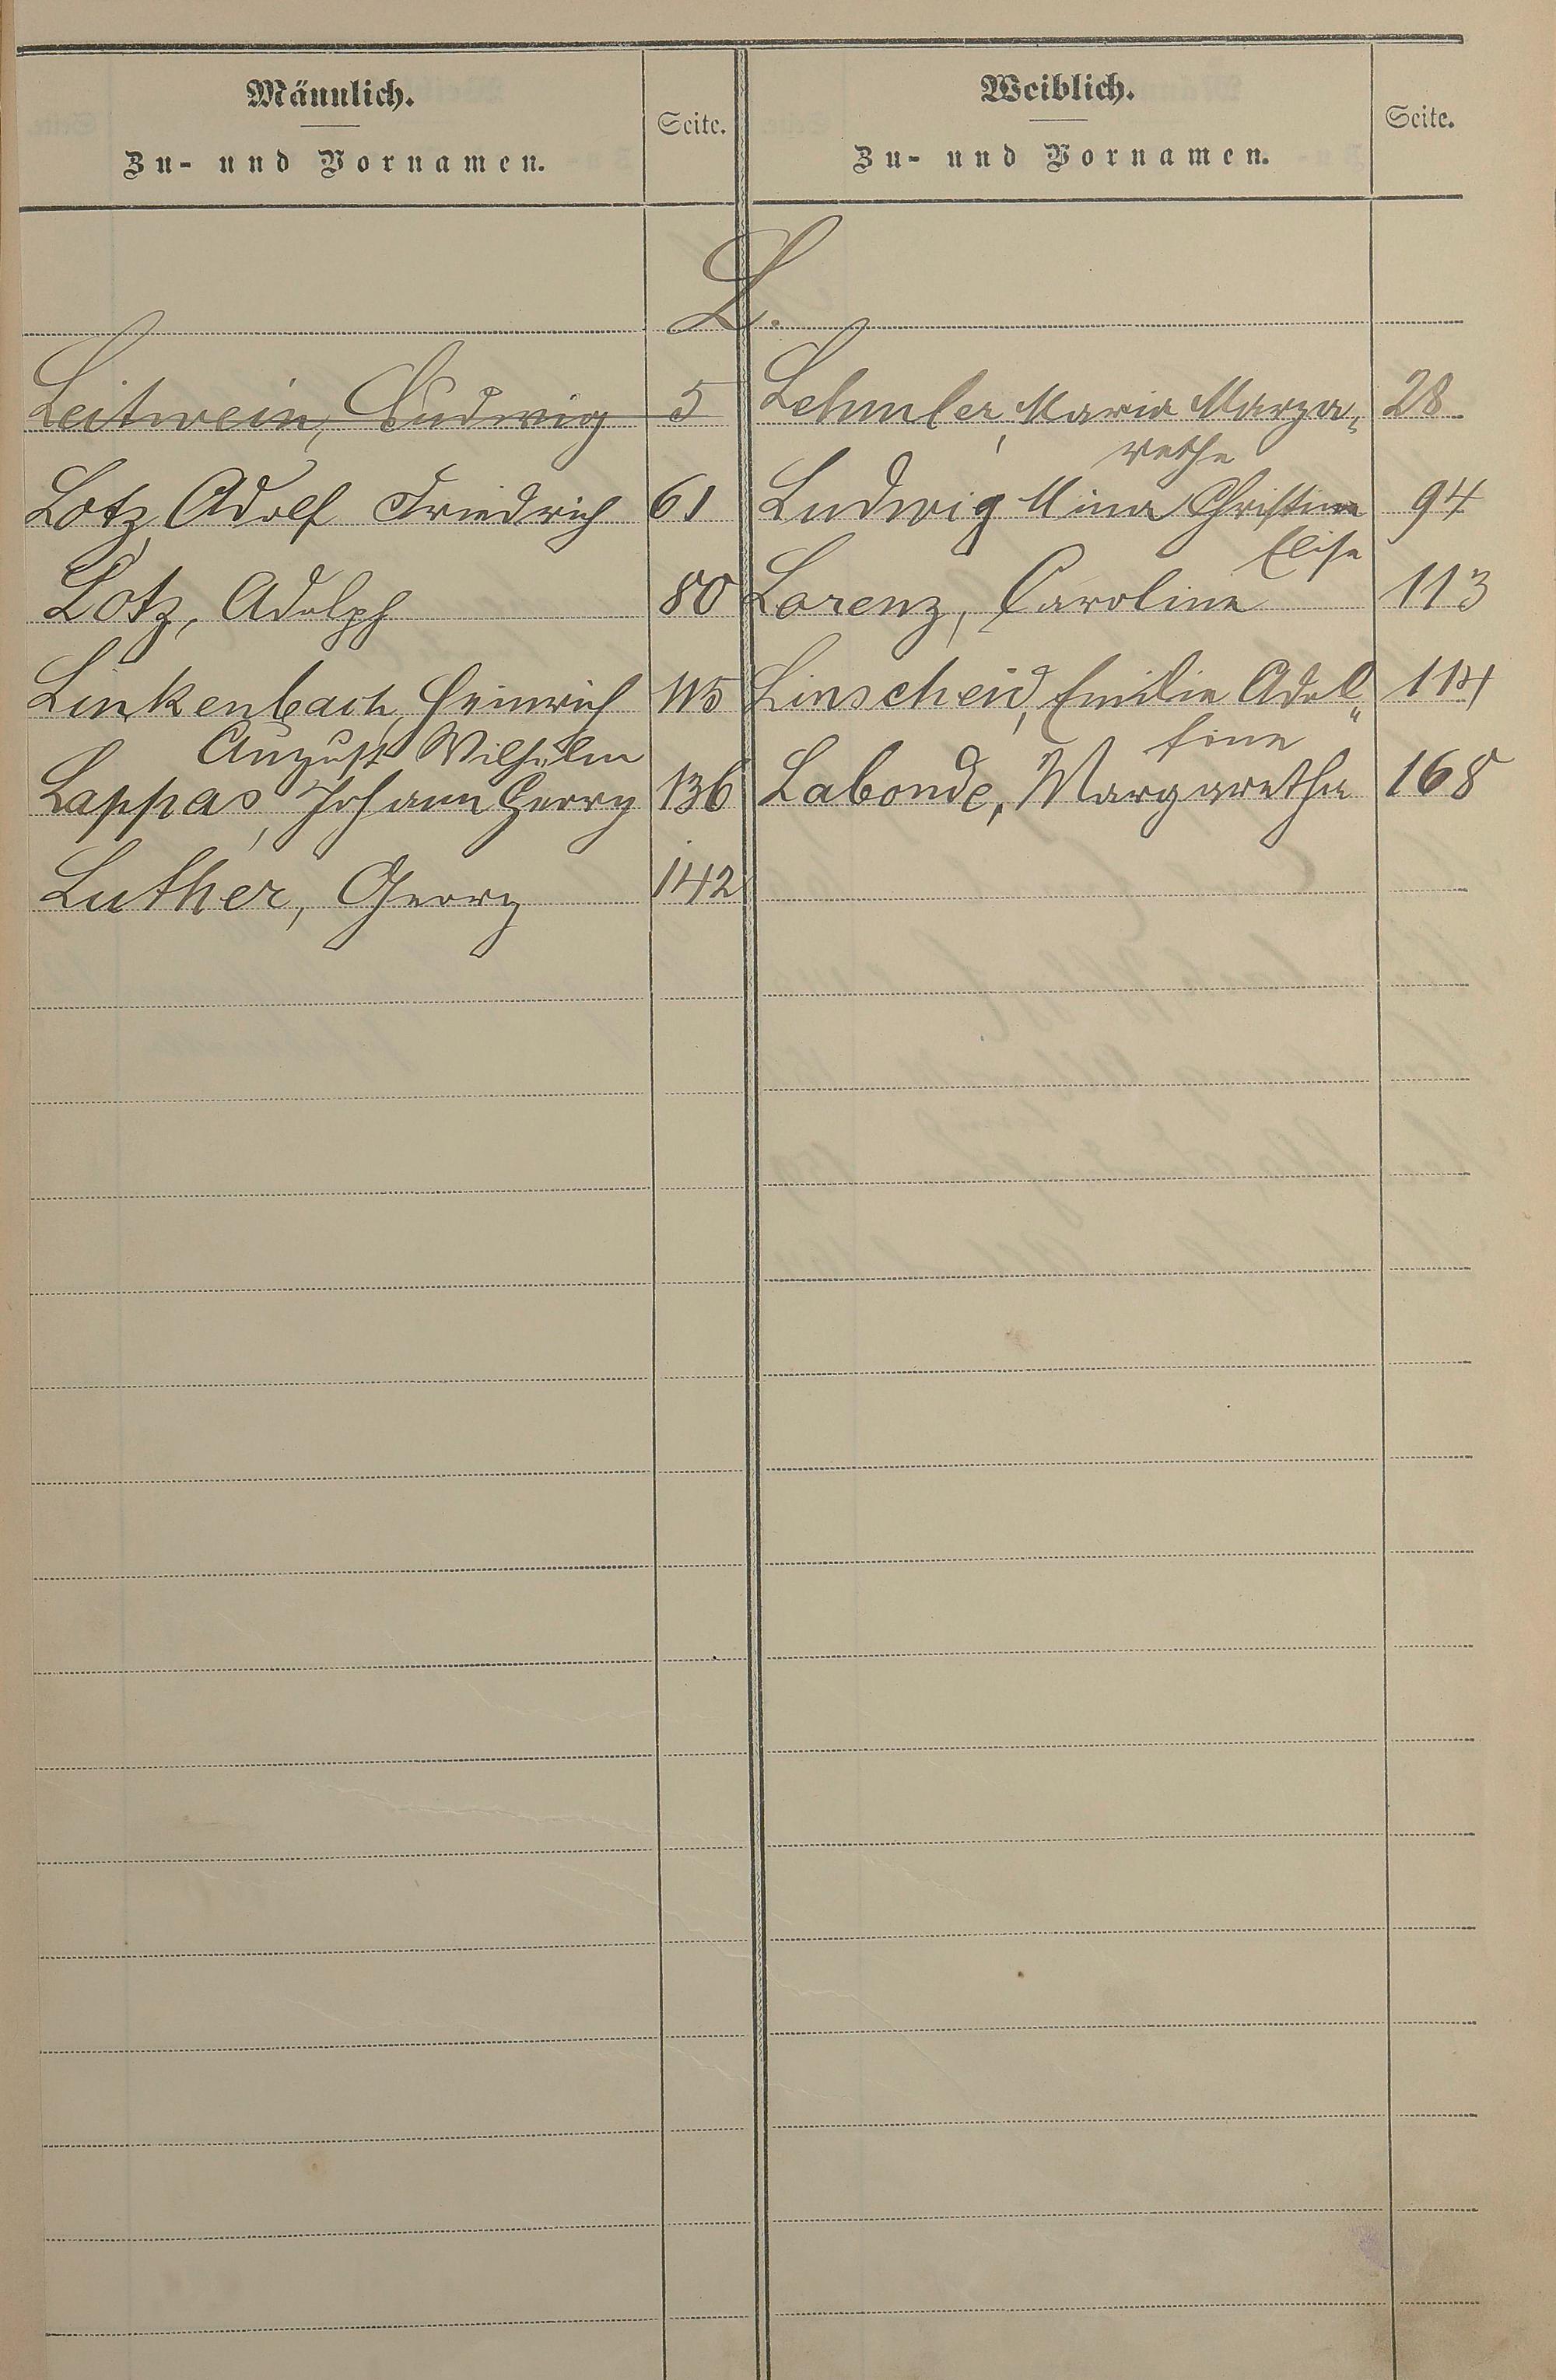 Männlich.
Zu- und Vornamen.
Seite.
Weiblich.
Zu- und Vornamen.
Seite.
L.
Leitwein, Ludwig 5
Lotz, Adolf Friedrich 61
Lotz, Adolph 80
Linkenbach, Heinrich 115
August Wilhelm
Lappas, Johann Georg 136
Luther, Georg 142
Lehmler, Maria Marga- 28
rethe
Ludwig Mina Christine 94
Elise
Lorenz, Caroline 113
Linscheid, Emilie Adol- 114
fine
Labonde, Margaretha 168